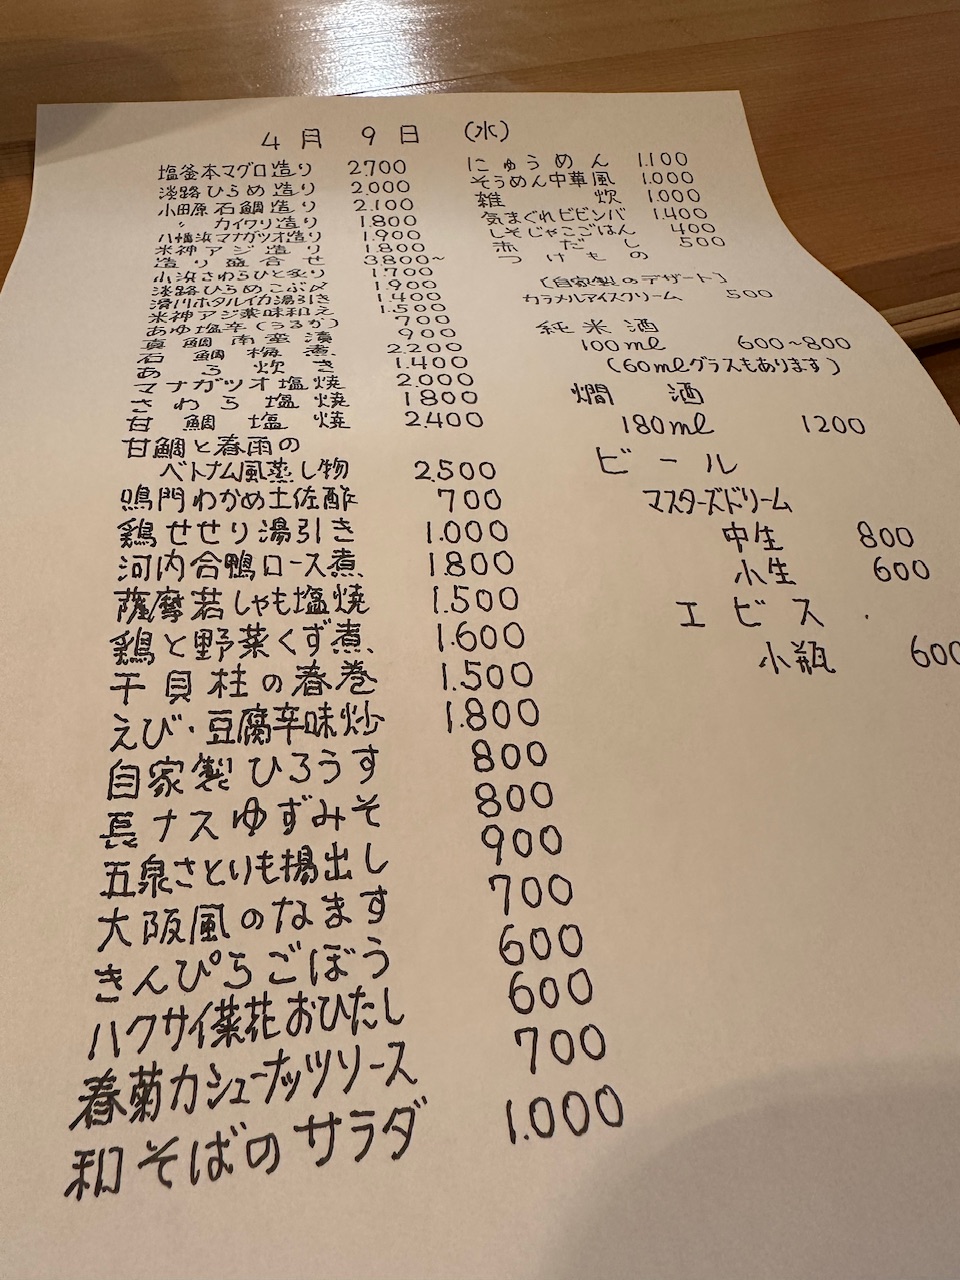 4月9日 (水)
塩釜本マグロ造り 2.700
淡路ひらめ造り 2.000
小田原石鯛造り 2.100
〃 カイワリ造り 1.800
八幡浜マナガツオ造り 1.900
米神アジ造り 1.800
造り盛合せ 3800~
小浜さわらひと炙り 1.700
淡路ひらめこぶ〆 1.900
滑川ホタルイカ湯引き 1.400
米神アジ薬味和え 1.500
あゆ塩辛(うるか) 700
真鯛南蛮漬 900
石鯛梅煮 2.200
あら炊き 1.400
マナガツオ塩焼 2.000
さわら塩焼 1800
甘鯛塩焼 2.400
甘鯛と春雨の
ベトナム風蒸し物 2.500
鳴門わかめ土佐酢 700
鶏せせり湯引き 1.000
河内合鴨ロース煮 1.800
薩摩若しゃも塩焼 1.500
鶏と野菜くず煮 1.600
干貝柱の春巻 1.500
えび・豆腐辛味炒 1.800
自家製ひろうす 800
長ナスゆずみそ 800
五泉さといも揚出し 900
大阪風のなます 700
きんぴらごぼう 600
ハクサイ菜花おひたし 600
春菊カシューナッツソース 700
和そばのサラダ 1.000
にゅうめん 1.100
そうめん中華風 1.000
雑炊 1.000
気まぐれビビンバ 1.400
しそじゃこごはん 400
赤だし 500
つけもの
(自家製のデザート)
カラメルアイスクリーム 500
純米酒
100ml 600~800
(60mlグラスもあります)
燗酒
180ml 1200
ビール
マスターズドリーム
中生 800
小生 600
エビス
小瓶 600